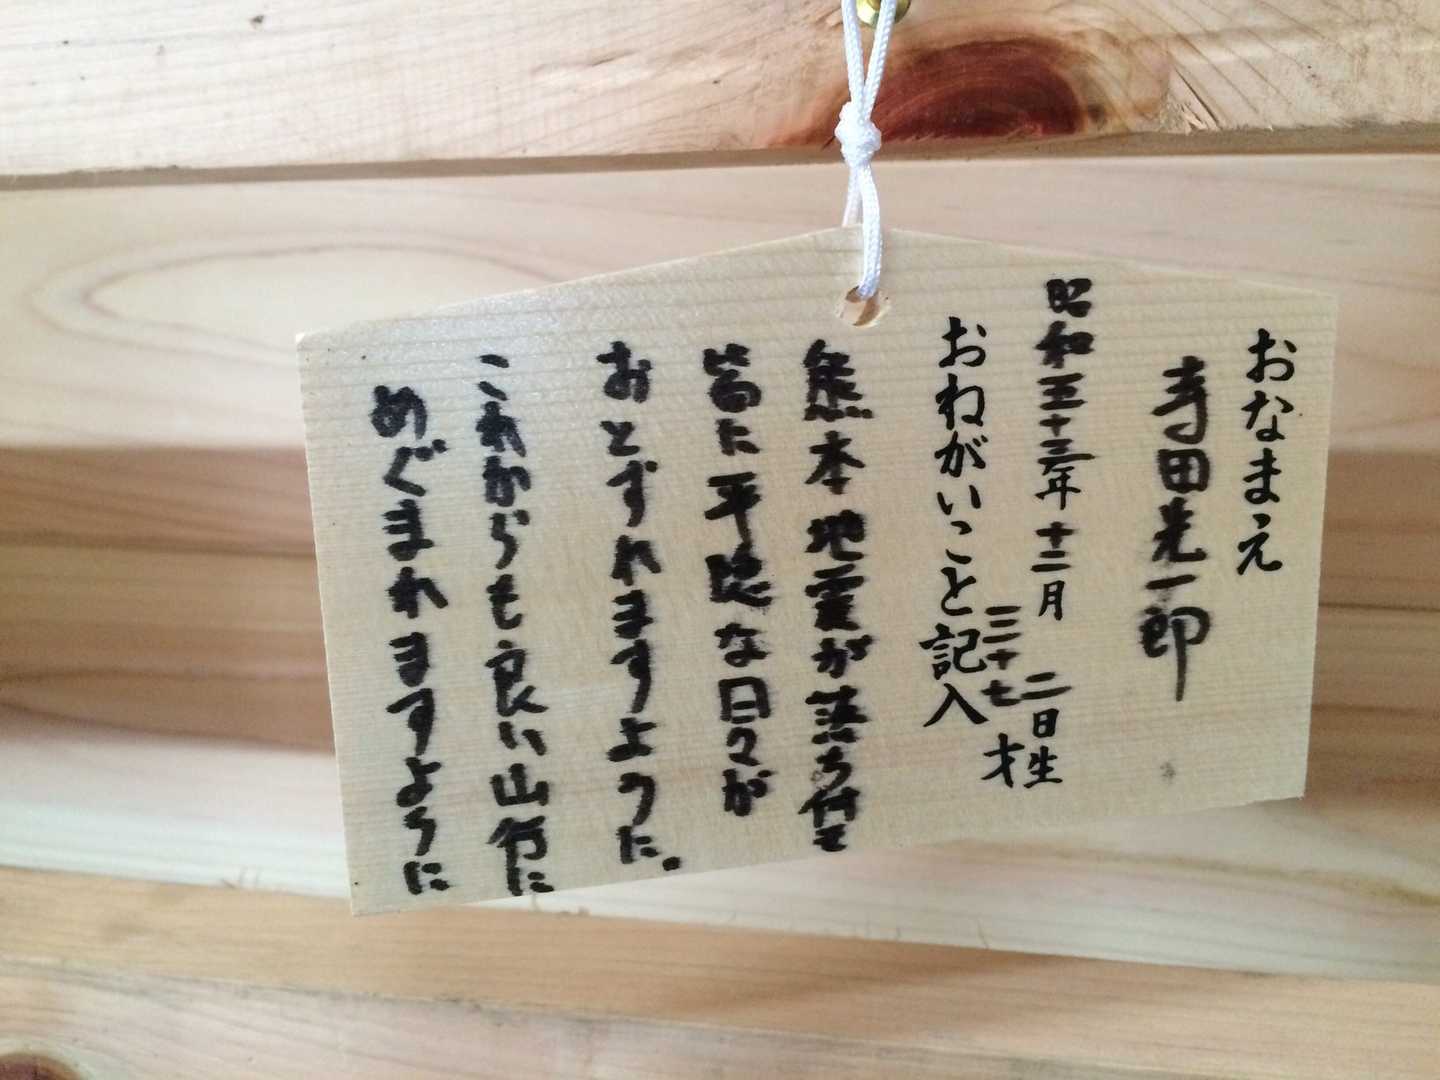 おなまえ
寺田光一郎
昭和五十三年十二月二日生
三十七才
おねがいこと記入
熊本地震が落ち付て
皆に平穏な日々が
おとずれますように。
これからも良い山行に
めぐまれますように